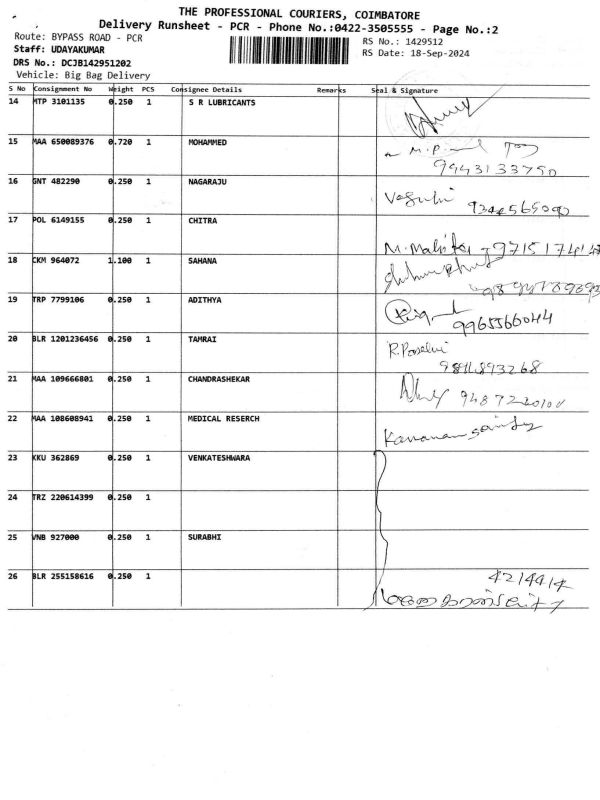 THE PROFESSIONAL COURIERS, COIMBATORE
Delivery Runsheet - PCR - Phone No.:0422-3505555 - Page No.:2
Route: BYPASS ROAD - PCR
RS No.: 1429512
Staff: UDAYAKUMAR
RS Date: 18-Sep-2024
DRS No.: DCJB142951202
Vehicle: Big Bag Delivery
S No Consignment No Weight PCS Consignee Details Remarks Seal & Signature
14 MTP 3101135 0.250 1 S R LUBRICANTS
15 MAA 650089376 0.720 1 MOHAMMED
9943133750
16 GNT 482290 0.250 1 NAGARAJU
17 POL 6149155 0.250 1 CHITRA
18 CKM 964072 1.100 1 SAHANA
19 TRP 7799106 0.250 1 ADITHYA
9965566044
20 BLR 1201236456 0.250 1 TAMRAI
21 MAA 109666801 0.250 1 CHANDRASHEKAR
22 MAA 108608941 0.250 1 MEDICAL RESERCH
23 KKU 362869 0.250 1 VENKATESHWARA
24 TRZ 220614399 0.250 1
25 VNB 927000 0.250 1 SURABHI
26 BLR 255158616 0.250 1
4214414